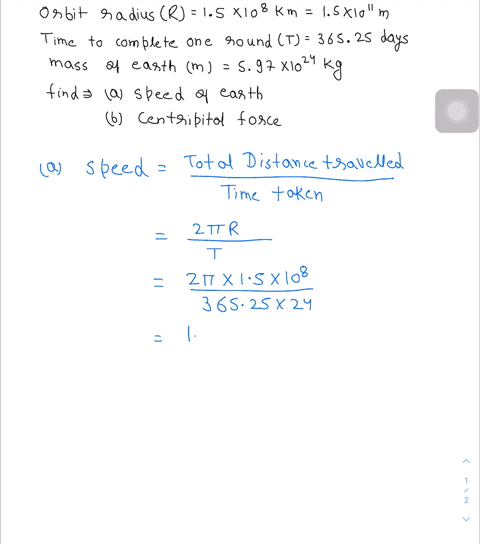 Orbit radius (R) = 1.5 × 10⁸ Km = 1.5 × 10¹¹ m
Time to complete one round (T) = 365.25 days
mass of earth (m) = 5.97 × 10²⁴ kg
find ⇒ (a) speed of earth
(b) Centripital force
(a) speed = Total Distance travelled / Time taken
= 2πR / T
= 2π × 1.5 × 10⁸ / 365.25 × 24
= 1.
1 / 2